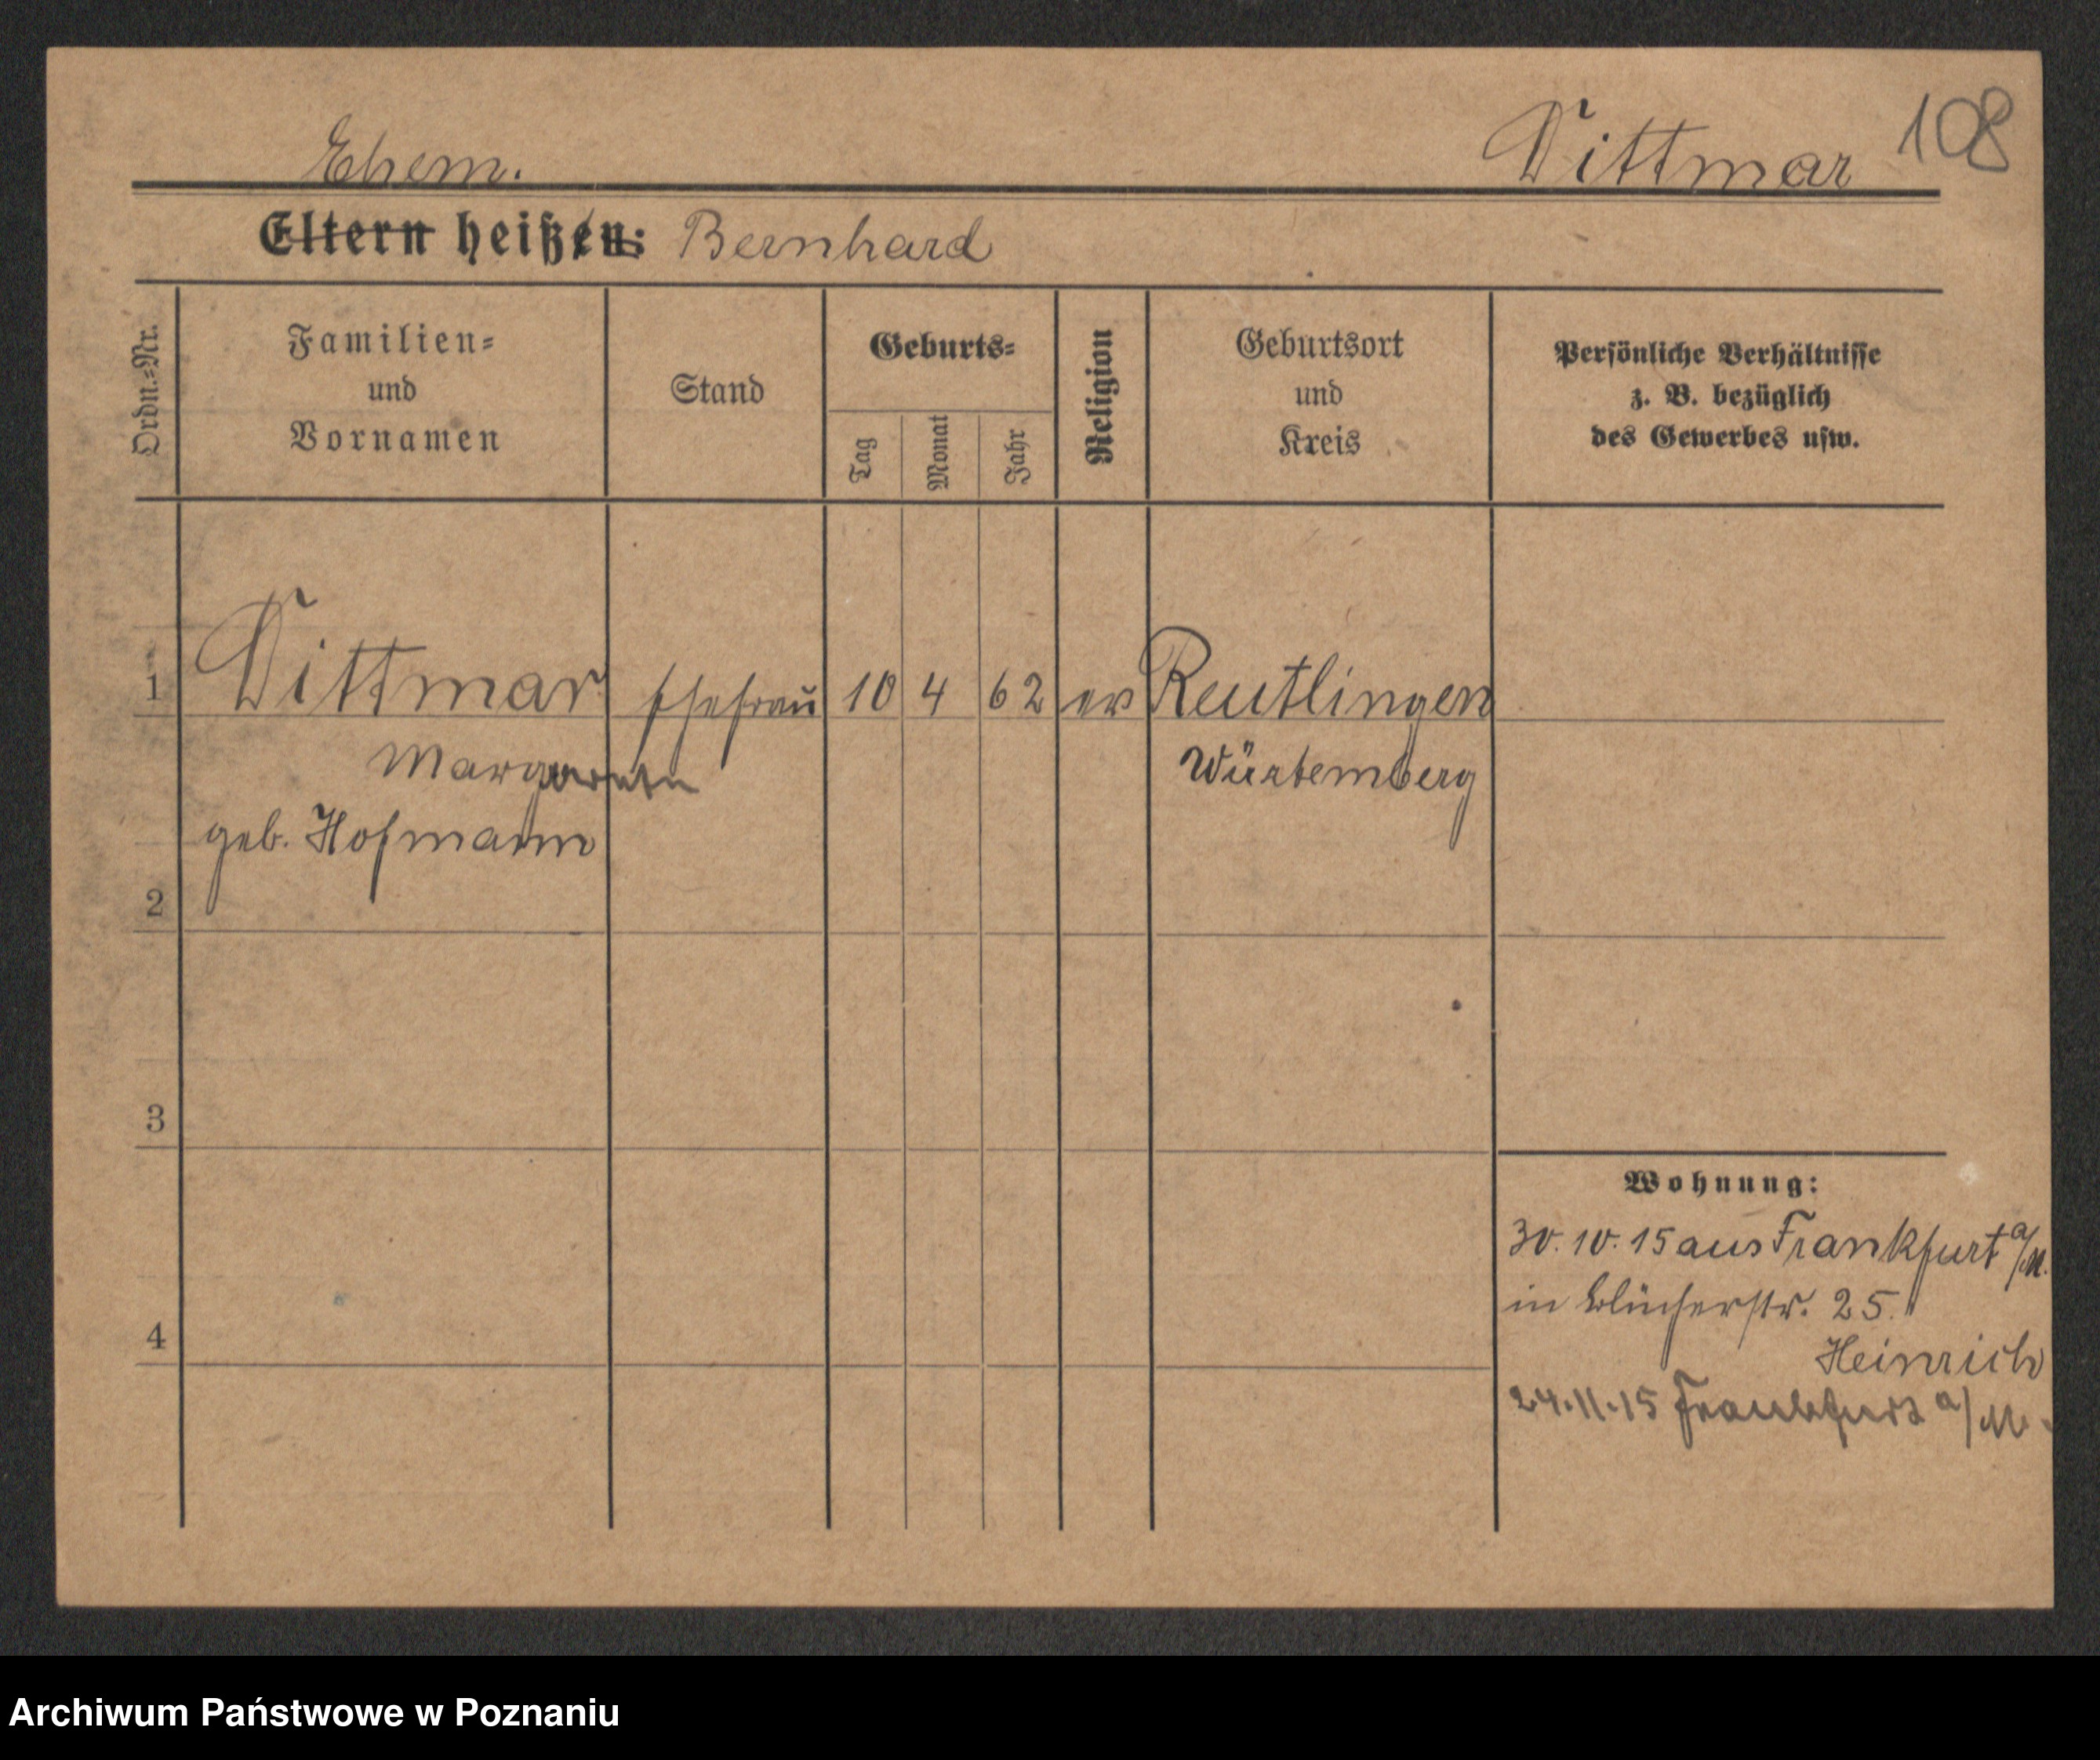 Dittmar 108
Ehem.
Eltern heißen: Bernhard
Ordn.-Nr.
Familien-
und
Vornamen
Stand
Geburts-
Tag
Monat
Jahr
Religion
Geburtsort
und
Kreis
Persönliche Verhältnisse
z. B. bezüglich
des Gewerbes usw.
1 Dittmar Ehefrau 10 4 62 ev Reutlingen
Würtemberg
geb. Hofmann
2
3
Wohnung:
30.10.15 aus Frankfurt a/M.
in Blücherstr. 25.
4
Heinrich
24.11.15 Frankfurt a/M.
Archiwum Państwowe w Poznaniu